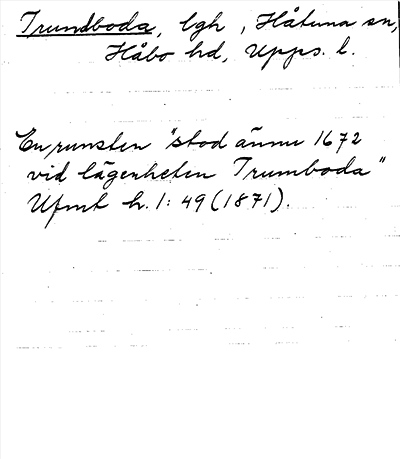 Trundboda, lgh, Håtuna sn,
Håbo hd, Upps. l.
En runsten "stod ännu 1672
vid lägenheten Trumboda"
Ufmt h. 1: 49 (1871).